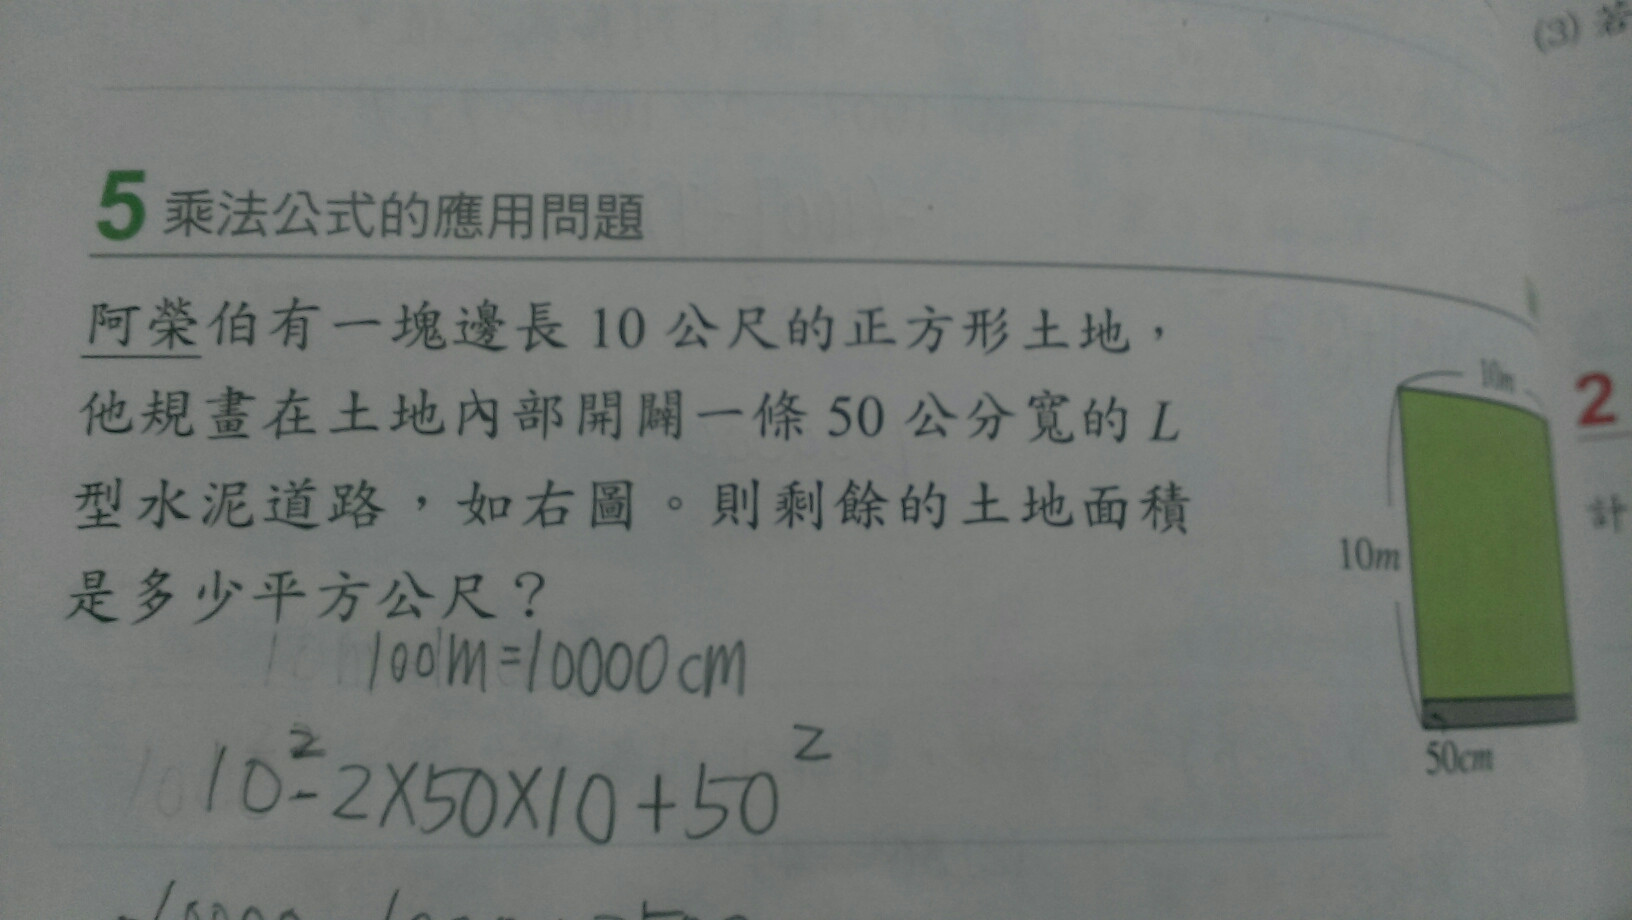 (3) 若
5 乘法公式的應用問題
阿榮伯有一塊邊長 10 公尺的正方形土地，
他規畫在土地內部開闢一條 50 公分寬的 L
型水泥道路，如右圖。則剩餘的土地面積
是多少平方公尺？
10m
10m
50cm
100m=10000cm
10²-2×50×10+50²
2
計